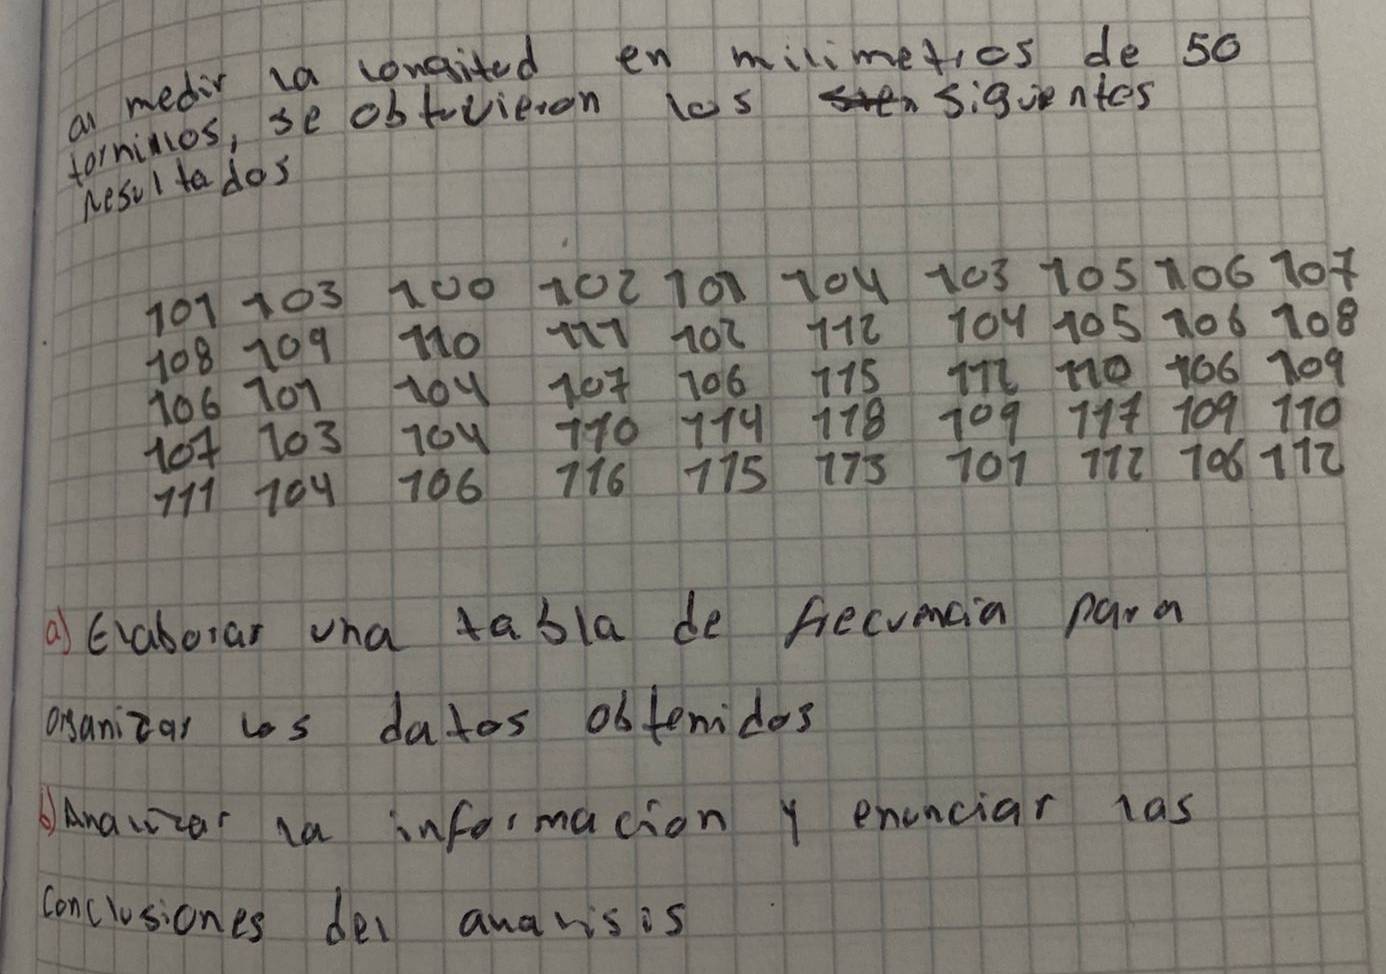 al medir la longitud en milimetros de 50
tornillos, se obtuvieron los sien siguientes
resultados
101 103 100 102 101 104 103 105 106 107
108 109 110 111 102 112 104 105 106 108
106 101 104 107 106 115 112 110 106 109
107 103 104 110 114 118 109 117 109 110
111 104 106 116 115 113 101 112 106 112
a) Elaborar una tabla de frecuencia para
organizar los datos obtenidos
b) Analizar la información y enunciar las
conclusiones del analisis